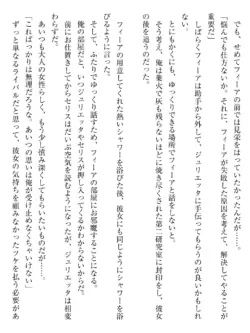 も、せめてフィーアの前では見栄をはっていたかったんだが……。
「悩んでても仕方ないか。それに、フィーアが失敗した原因を考えて、解決してやることが
重要だ」
しばらくフィーアは助手から外して、ジュリエッタに手伝ってもらうのが良いかもしれ
ないが、とにかく、ゆっくりできる場所でフィーアと話をしないと。
そう考え、俺は業火で灰も残らないほどに焼き尽くされた第二研究室に封印をし、彼女
の後を追うのだった。
フィーアの用意してくれた熱いシャワーを浴びた後、彼女にも同じようにシャワーを浴
びるように言った。
そして、ふたりでゆっくり話すため、フィーアの部屋にお邪魔することになる。
俺の部屋だと、いつジュリエッタやセリスが押し入ってくるかわからないからだ。
前にお仕置きしてからセリスはだいぶ空気を読むようになったが、ジュリエッタは相変
わらずだ。
あいつも大人の女性なんだから、もう少し慎み深くしてもらいたいものだが……。
「こればっかりは無理だろうな。あいつの思いは俺が受け止めなくちゃいけない」
ずっと単なるライバルだと思って、彼女の気持ちを組みなかったツケを払う必要があ